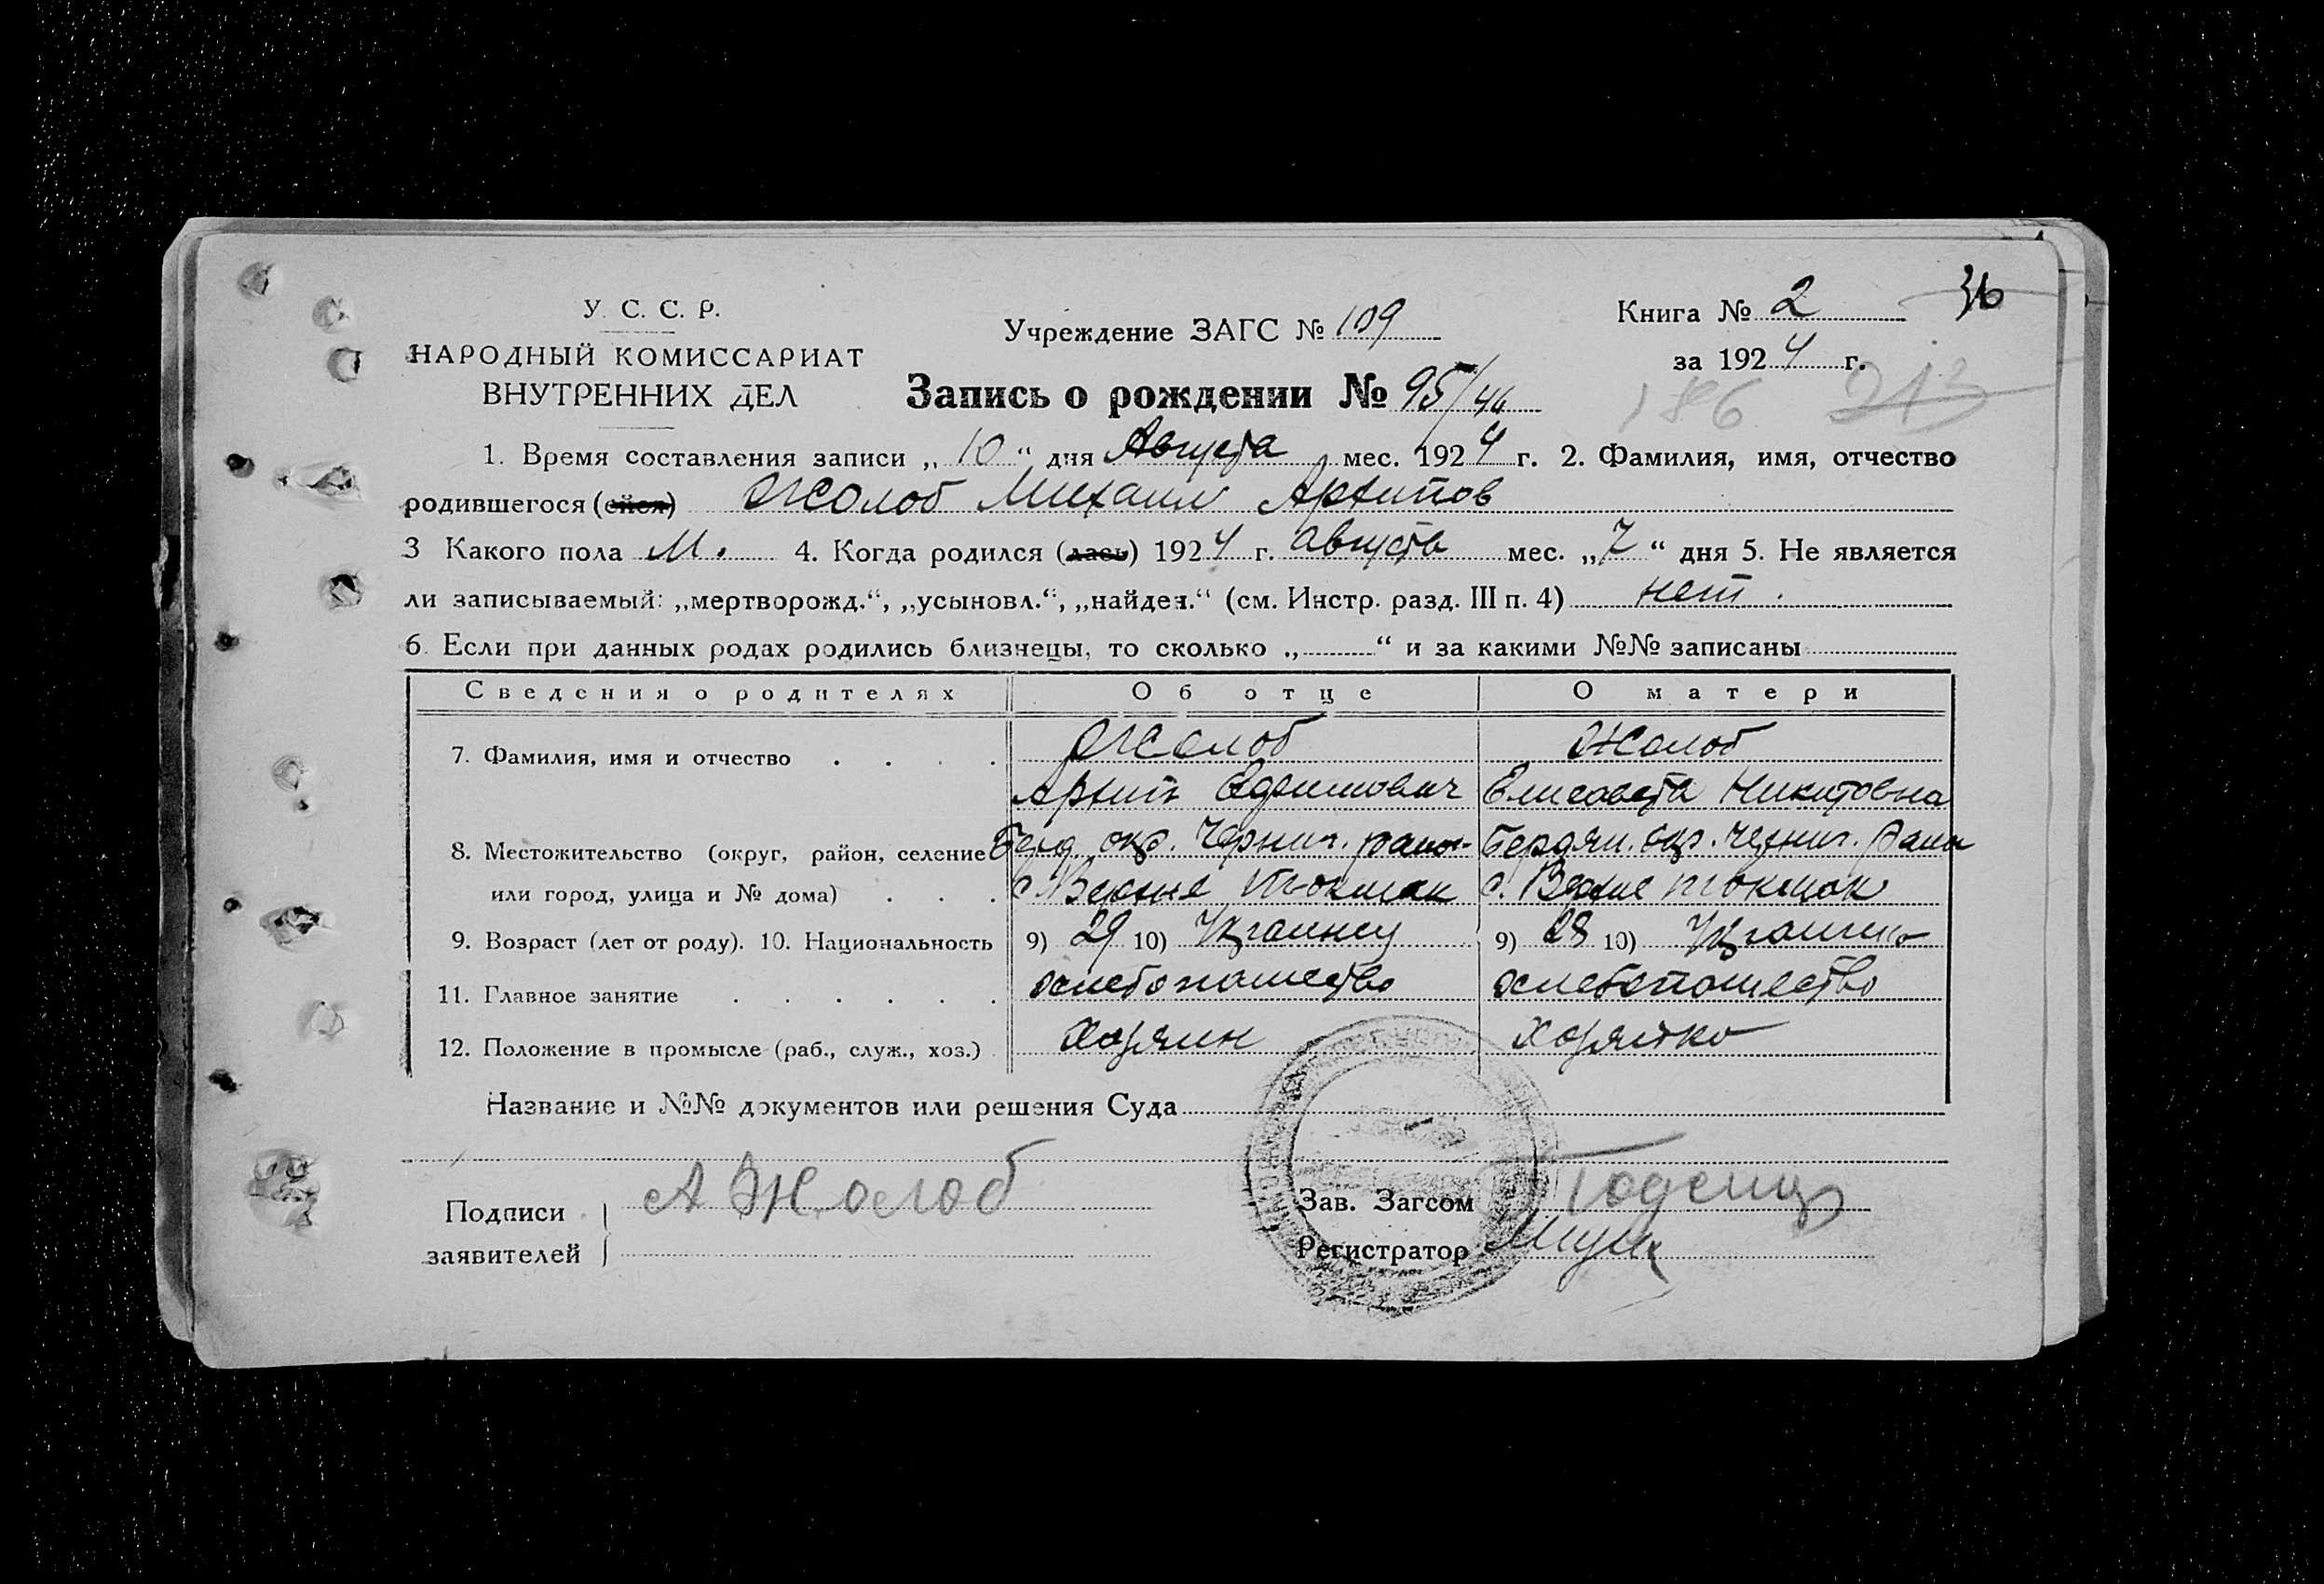 У. С. С. Р.
НАРОДНЫЙ КОМИССАРИАТ
ВНУТРЕННИХ ДЕЛ
Учреждение ЗАГС № 109
Книга № 2
36
за 1924 г.
Запись о рождении № 95/46
186 213
1. Время составления записи „10“ дня Августа мес. 1924 г. 2. Фамилия, имя, отчество
родившегося (ейся) Жолоб Михаил Архипов
3 Какого пола М. 4. Когда родился (лась) 1924 г. августа мес. „7“ дня 5. Не является
ли записываемый: „мертворожд.“, „усыновл.“, „найден.“ (см. Инстр. разд. III п. 4) нет.
6. Если при данных родах родились близнецы, то сколько „ “ и за какими №№ записаны
Сведения о родителях Об отце О матери
7. Фамилия, имя и отчество Жолоб Жолоб
Архип Елисавета Никитовна
8. Местожительство (округ, район, селение Берд. окр. Черниг. район Бердян. окр. Черниг. район
или город, улица и № дома) с. Верхне Токмак с. Верхне Токмак
9. Возраст (лет от роду). 10. Национальность 9) 29 10) Украинец 9) 28 10) Украинка
11. Главное занятие хлебопашество хлебопашество
12. Положение в промысле (раб., служ., хоз.) Хозяин Хозяйка
Название и №№ документов или решения Суда
Подписи заявителей А Жолоб
Зав. Загсом
Регистратор